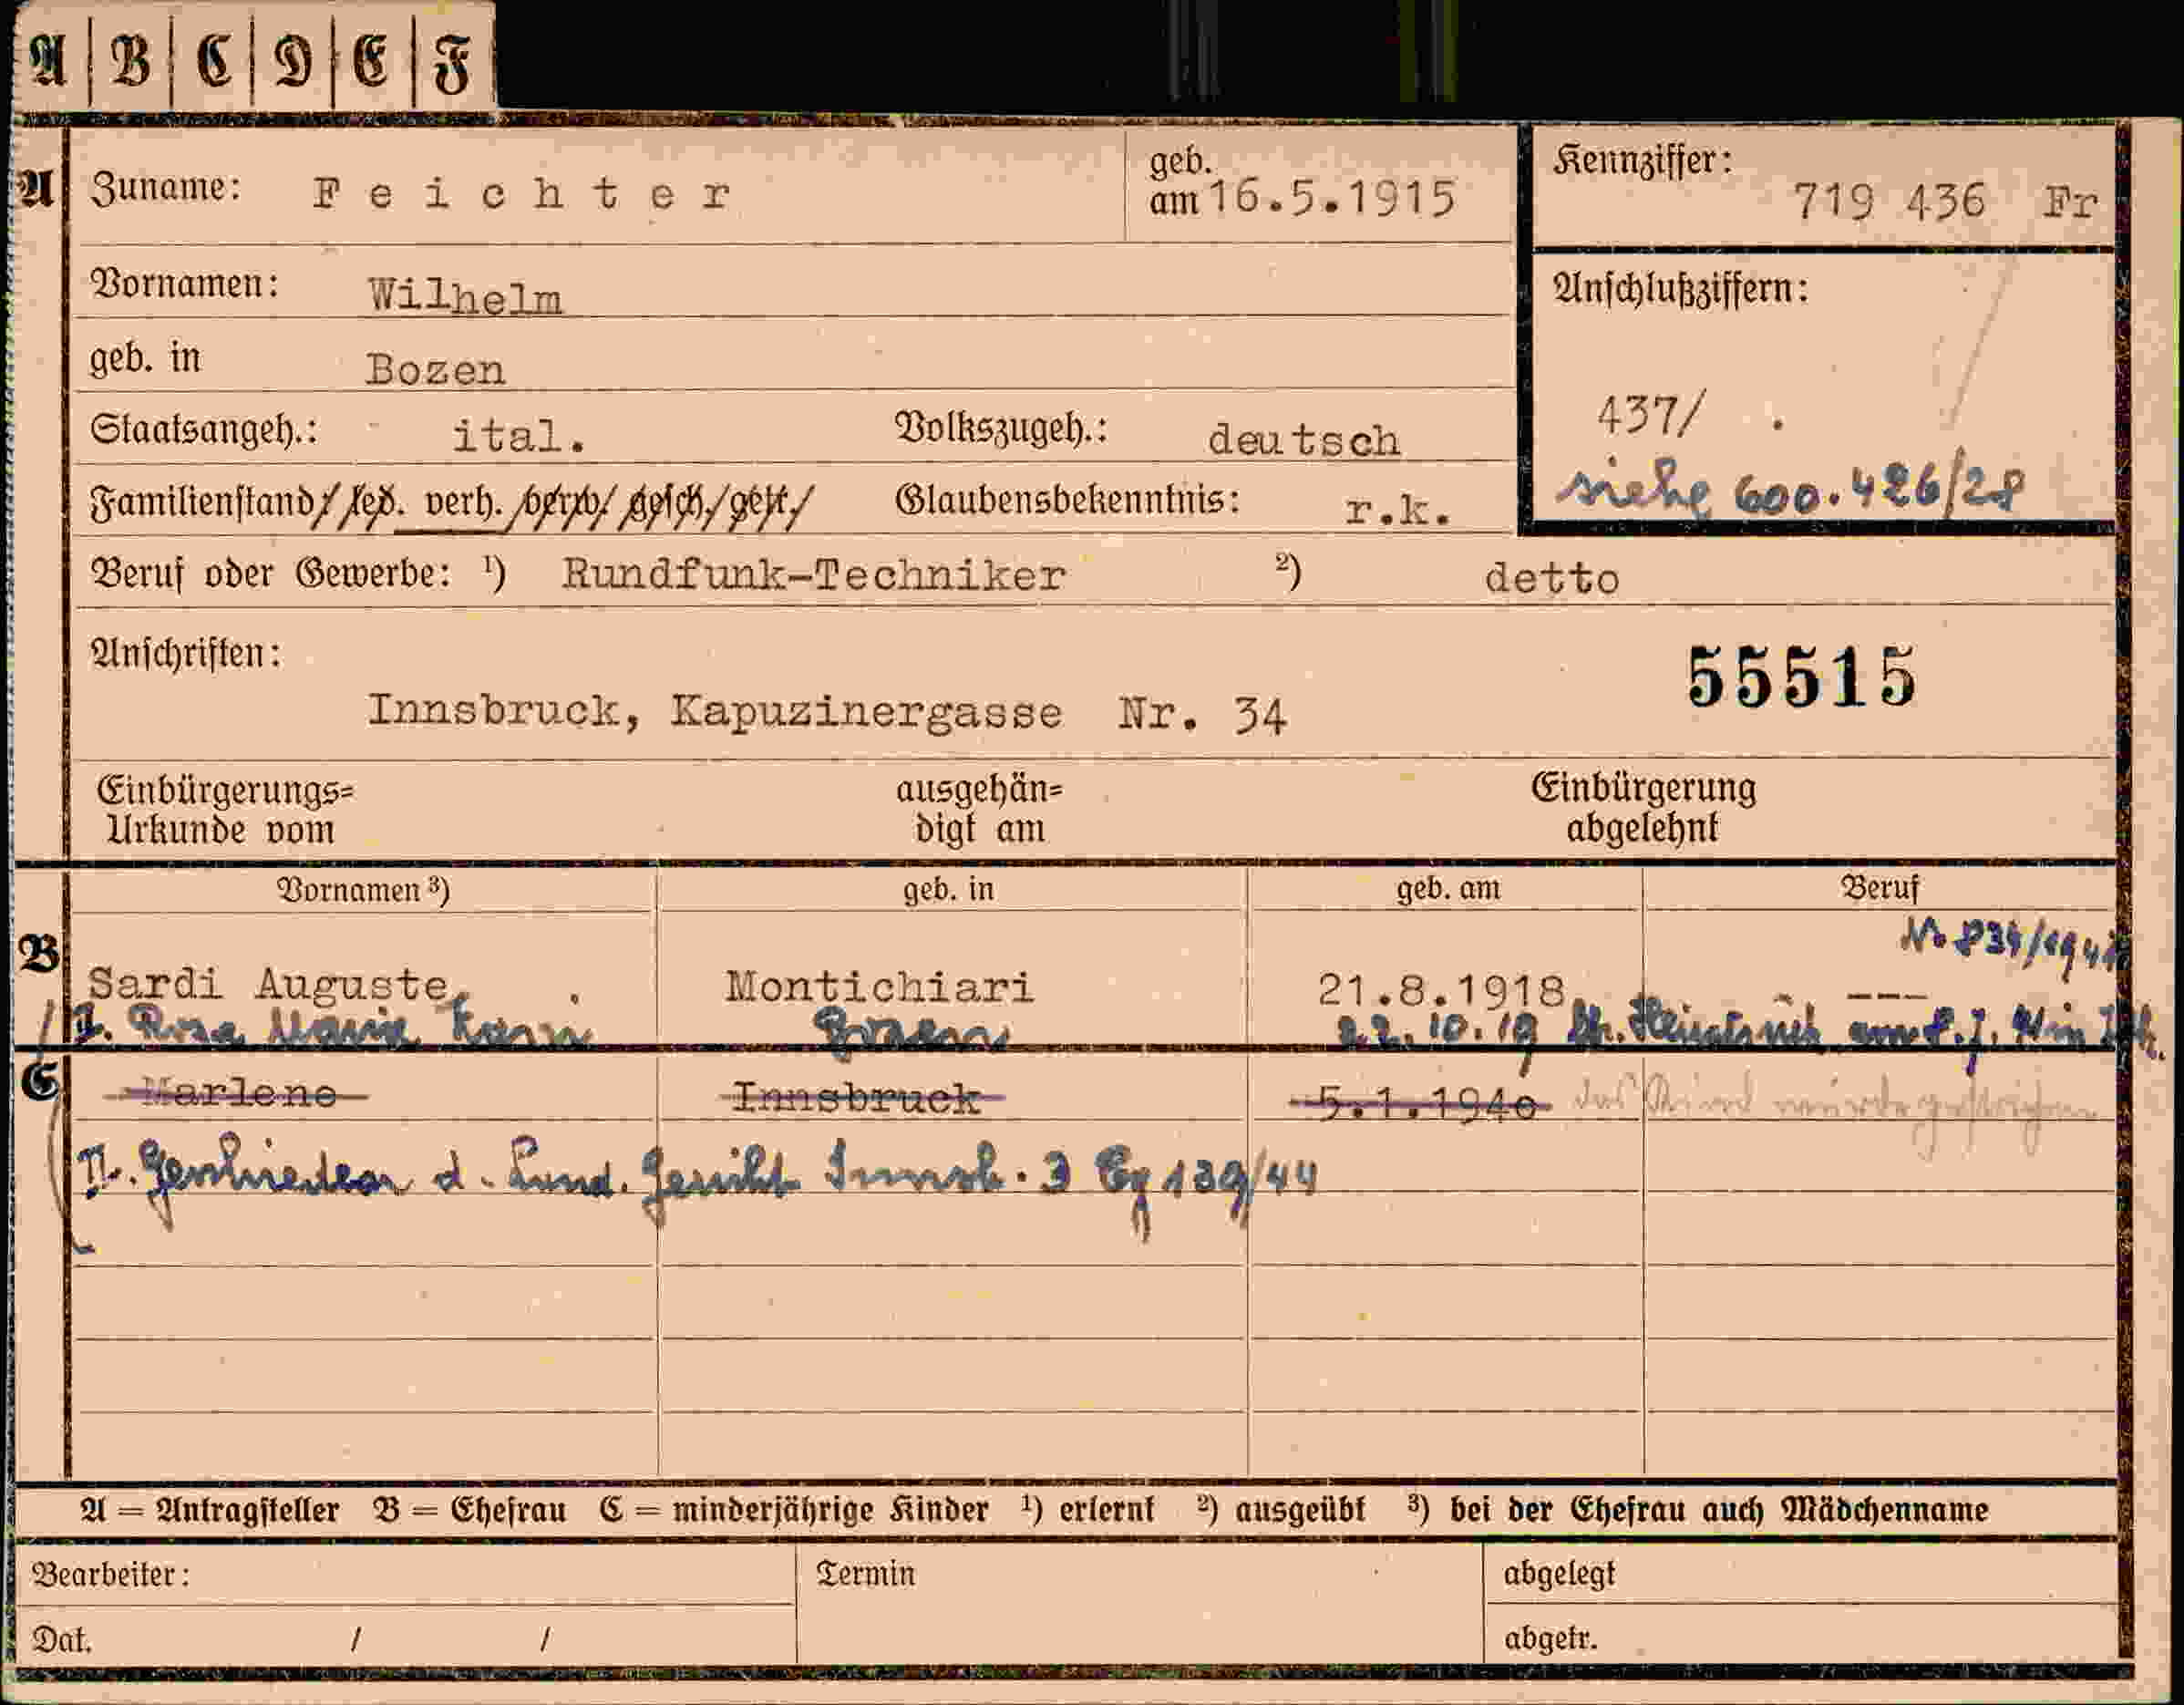 A | B | C | D | E | F
A Zuname: Feichter geb. am 16.5.1915 Kennziffer: 719 436 Fr
Vornamen: Wilhelm Anschlußziffern:
geb. in Bozen
Staatsangeh.: ital. Volkszugeh.: deutsch 437/ .
Familienstand/ led. verh. /verw/ gesch./getr./ Glaubensbekenntnis: r.k. siehe 600.426/28
Beruf oder Gewerbe: ¹) Rundfunk-Techniker ²) detto
Anschriften: 55515
Innsbruck, Kapuzinergasse Nr. 34
Einbürgerungs= ausgehän= Einbürgerung
Urkunde vom digt am abgelehnt
Vornamen ³) geb. in geb. am Beruf
B Sardi Auguste, Montichiari 21.8.1918 ---
I. Rosa Maria Bozen 22.10.19
C Marlene Innsbruck 5.1.1940 das Kind wurde gestrichen
II. Geschieden d. Land. Gericht Innsb. 3 Cg 139/44
A = Antragsteller B = Ehefrau C = minderjährige Kinder ¹) erlernt ²) ausgeübt ³) bei der Ehefrau auch Mädchenname
Bearbeiter: Termin abgelegt
Dat. / / abgetr.